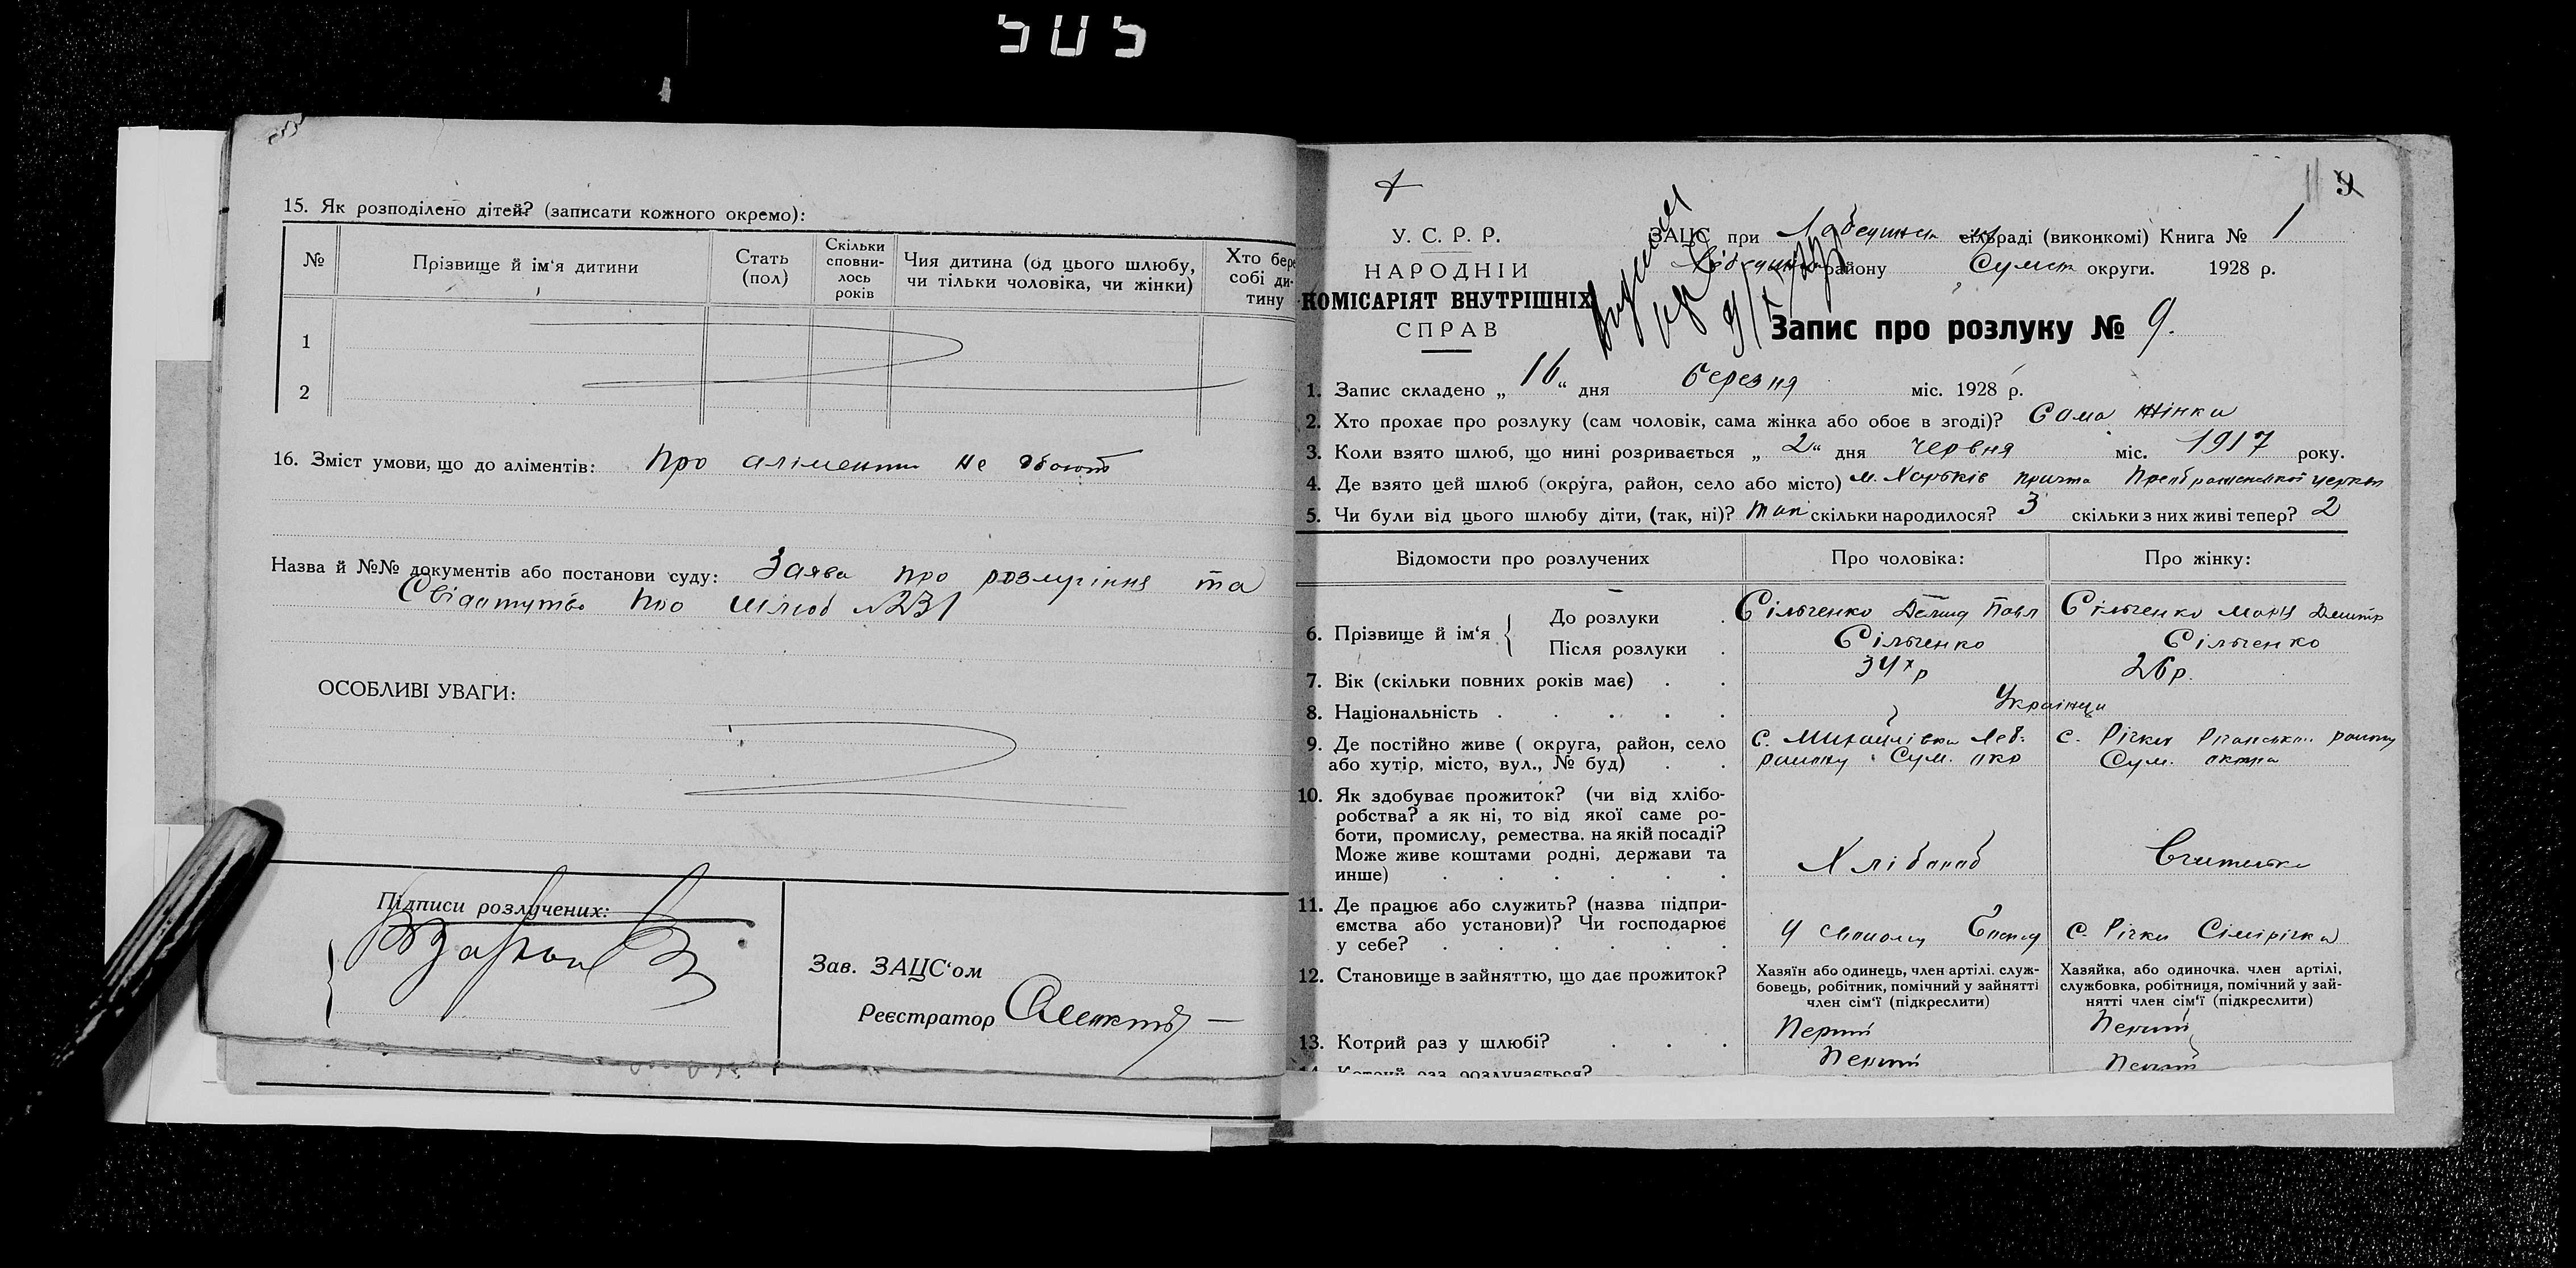 505
15. Як розподілено дітей? (записати кожного окремо):
№ Прізвище й ім‘я дитини Стать (пол) Скільки сповни-лось років Чия дитина (од цього шлюбу, чи тільки чоловіка, чи жінки) Хто бере собі ди-тину
1
2
16. Зміст умови, що до аліментів: про аліменти не
Назва й №№ документів або постанови суду: Заява про розлучіння та
про шлюб №231
ОСОБЛИВІ УВАГИ:
Підписи розлучених:
Зав. ЗАЦС‘ом
Реєстратор
9
У. С. Р. Р.
НАРОДНІЙ
КОМІСАРІЯТ ВНУТРІШНІХ
СПРАВ
ЗАЦС при Лебединськ сільраді (виконкомі) Книга № 1
району Сумск округи. 1928 р.
Запис про розлуку № 9.
1. Запис складено „ 16 “ дня березня міс. 1928 р.
2. Хто прохає про розлуку (сам чоловік, сама жінка або обоє в згоді)? Сама жінка
3. Коли взято шлюб, що нині розривається „ 2 “ дня червня міс. 1917 року.
4. Де взято цей шлюб (округа, район, село або місто) м. Харьків церкви
5. Чи були від цього шлюбу діти, (так, ні)? так скільки народилося? 3 скільки з них живі тепер? 2
Відомости про розлучених Про чоловіка: Про жінку:
6. Прізвище й ім‘я { До розлуки . Сільченко Павл Сільченко Дмитр
Після розлуки . Сільченко Сільченко
7. Вік (скільки повних років має) . . 34х р 26 р.
8. Національність . . . . . Українци
9. Де постійно живе ( округа, район, село с. Михайлівка Леб. с. Річки району
або хутір, місто, вул., № буд) . . району Сум. окр Сум.
10. Як здобуває прожиток? (чи від хлібо-
робства? а як ні, то від якої саме ро-
боти, промислу, ремества. на якій посаді?
Може живе коштами родні, держави та
инше) . . . . . . Хлібороб Вчителька
11. Де працює або служить? (назва підпри-
ємства або установи)? Чи господарює
у себе? . . . . . . у с. Річки Сімірічка
12. Становище в зайняттю, що дає прожиток? Хазяїн або одинець, член артілі. служ-бовець, робітник, помічний у зайнятті член сім‘ї (підкреслити) Хазяйка, або одиночка. член артілі, службовка, робітниця, помічний у зай-нятті член сім‘ї (підкреслити)
13. Котрий раз у шлюбі? . . . Перший Перший
14. Котрий раз розлучається? Перший Перший